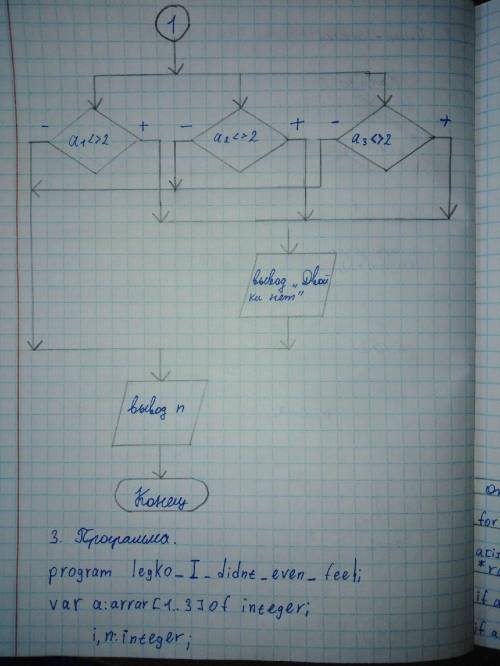 1
- a1<>2 + - a2<>2 + - a3<>2 +
вывод „Двой
ки нет"
вывод n
Конец
3. Программа.
program legko_I_didnt_even_feel;
var a:arrar[1..3] of integer;
i,n:integer;
for
if a
if a